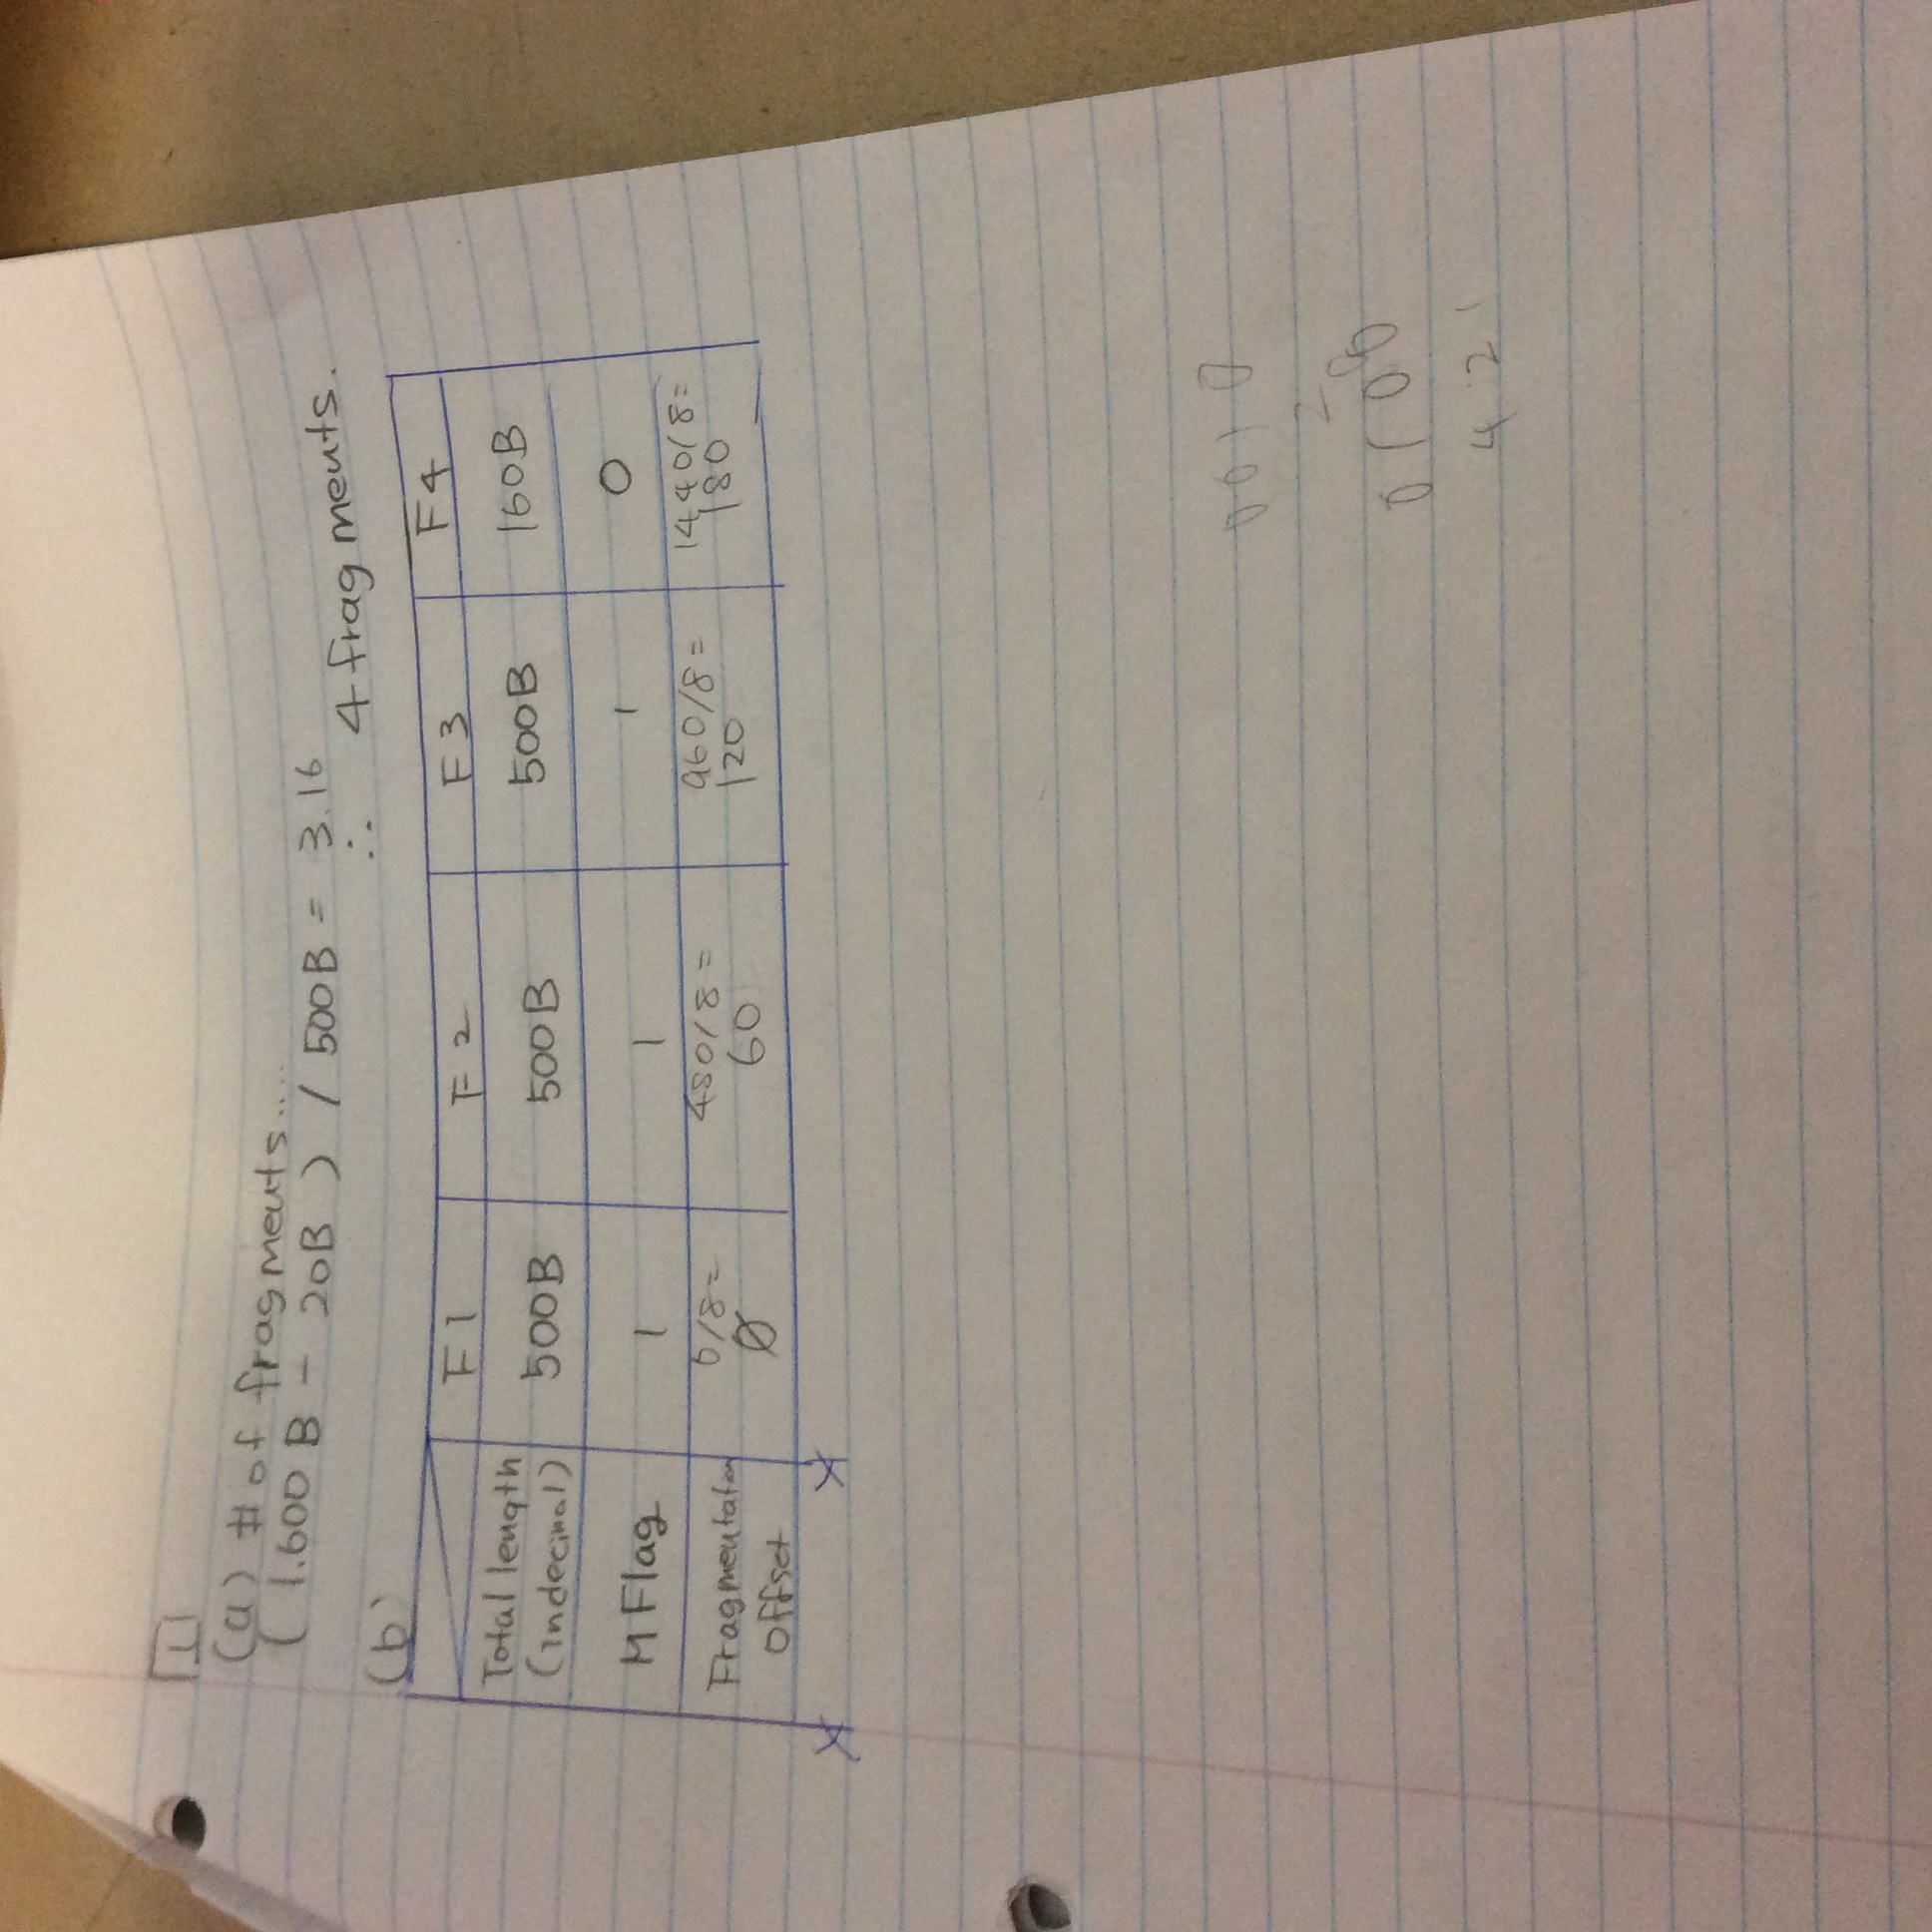 1
(a) # of fragments....
( 1.600 B - 20B ) / 500B = 3.16
∴ 4 fragments.
(b)
F1 F2 F3 F4
Total length (indecimal) 500B 500B 500B 160B
M Flag 1 1 1 0
Fragmentation offset 0/8= 0 480/8= 60 960/8= 120 1440/8= 180
0010
2
0100
4 2 1